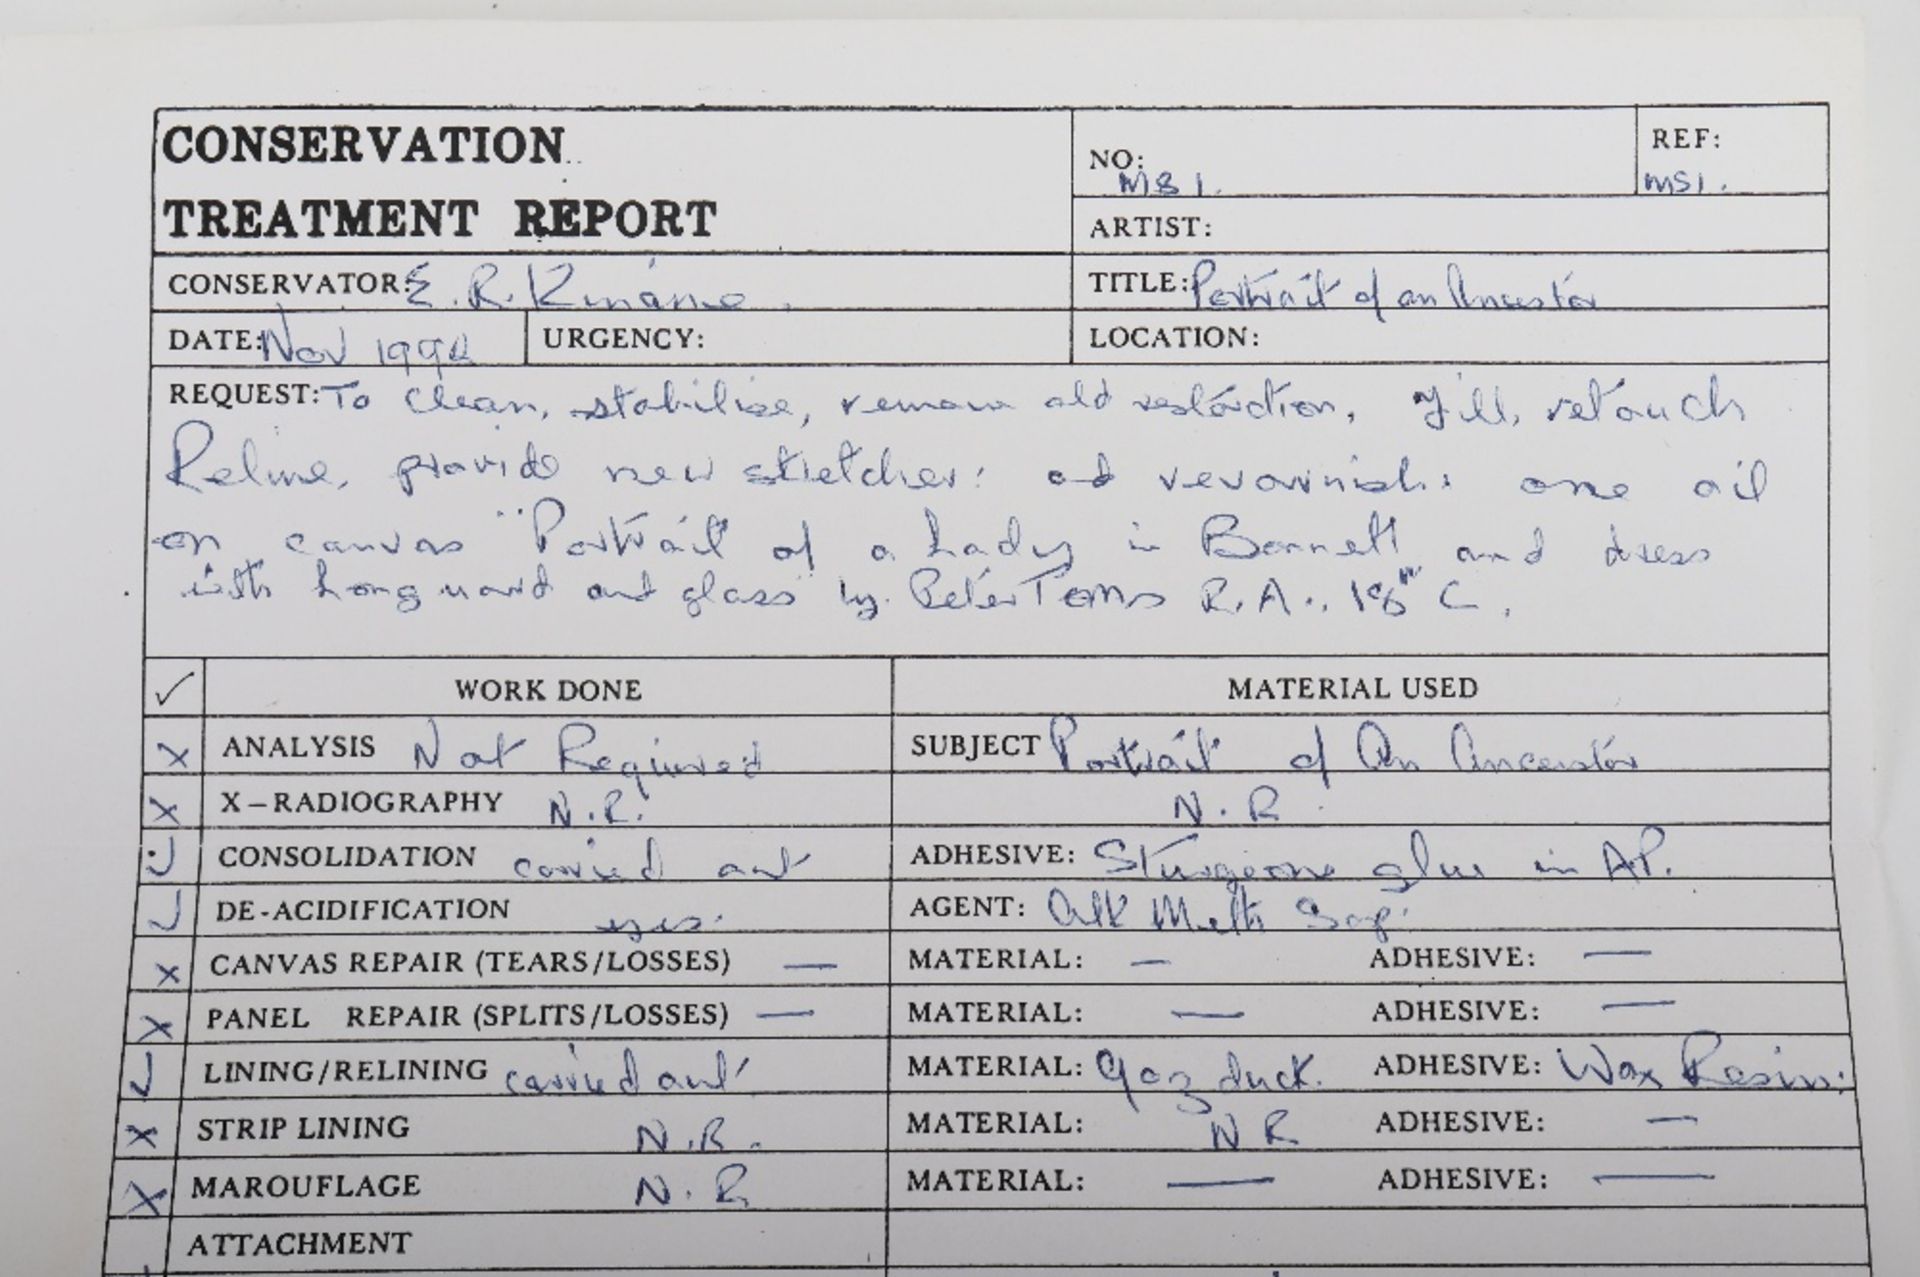 CONSERVATION
TREATMENT REPORT
NO: MS 1.
REF: MS1.
ARTIST:
CONSERVATOR: E. R.
TITLE: Portrait of an Ancestor
DATE: Nov
URGENCY:
LOCATION:
REQUEST: To clean, stabilise, remove old restoration, fill, retouch
Reline, provide new stretcher: and revarnish: one oil
on canvas "Portrait of a Lady in Bonnett and dress
with Longuard and glass by Peter Toms R.A., 18th C.
✓ WORK DONE MATERIAL USED
X ANALYSIS Not Required SUBJECT Portrait of An Ancestor
X X-RADIOGRAPHY N.R. N.R
✓ CONSOLIDATION carried out ADHESIVE: Sturgeone glue in AP.
✓ DE-ACIDIFICATION yes. AGENT: Alk Meth
X CANVAS REPAIR (TEARS/LOSSES) — MATERIAL: — ADHESIVE: —
X PANEL REPAIR (SPLITS/LOSSES) — MATERIAL: — ADHESIVE: —
✓ LINING/RELINING carried out MATERIAL: 9 oz duck. ADHESIVE: Wax Resin.
X STRIP LINING N.R. MATERIAL: NR ADHESIVE: —
X MAROUFLAGE N.R MATERIAL: — ADHESIVE: —
ATTACHMENT